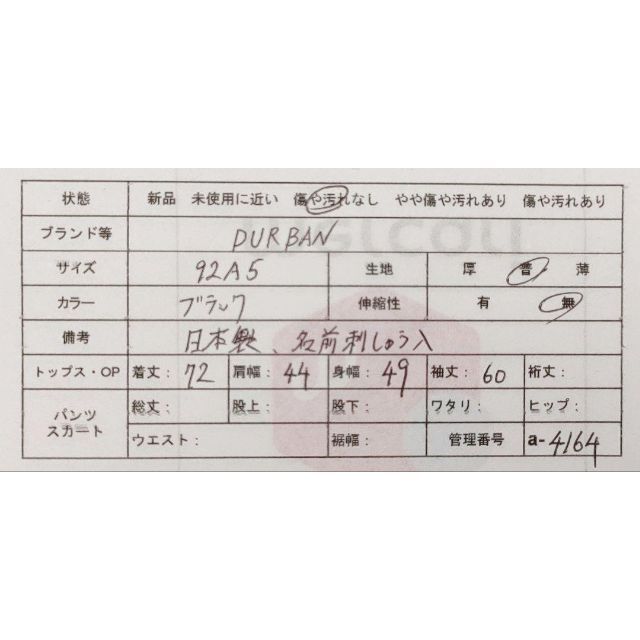 状態 新品 未使用に近い 傷や汚れなし やや傷や汚れあり 傷や汚れあり
ブランド等 DURBAN
サイズ 92A5 生地 厚 普 薄
カラー ブラック 伸縮性 有 無
備考 日本製、名前刺しゅう入
トップス・OP 着丈: 72 肩幅: 44 身幅: 49 袖丈: 60 裄丈:
パンツ スカート 総丈: 股上: 股下: ワタリ: ヒップ:
ウエスト: 裾幅: 管理番号 a-4164